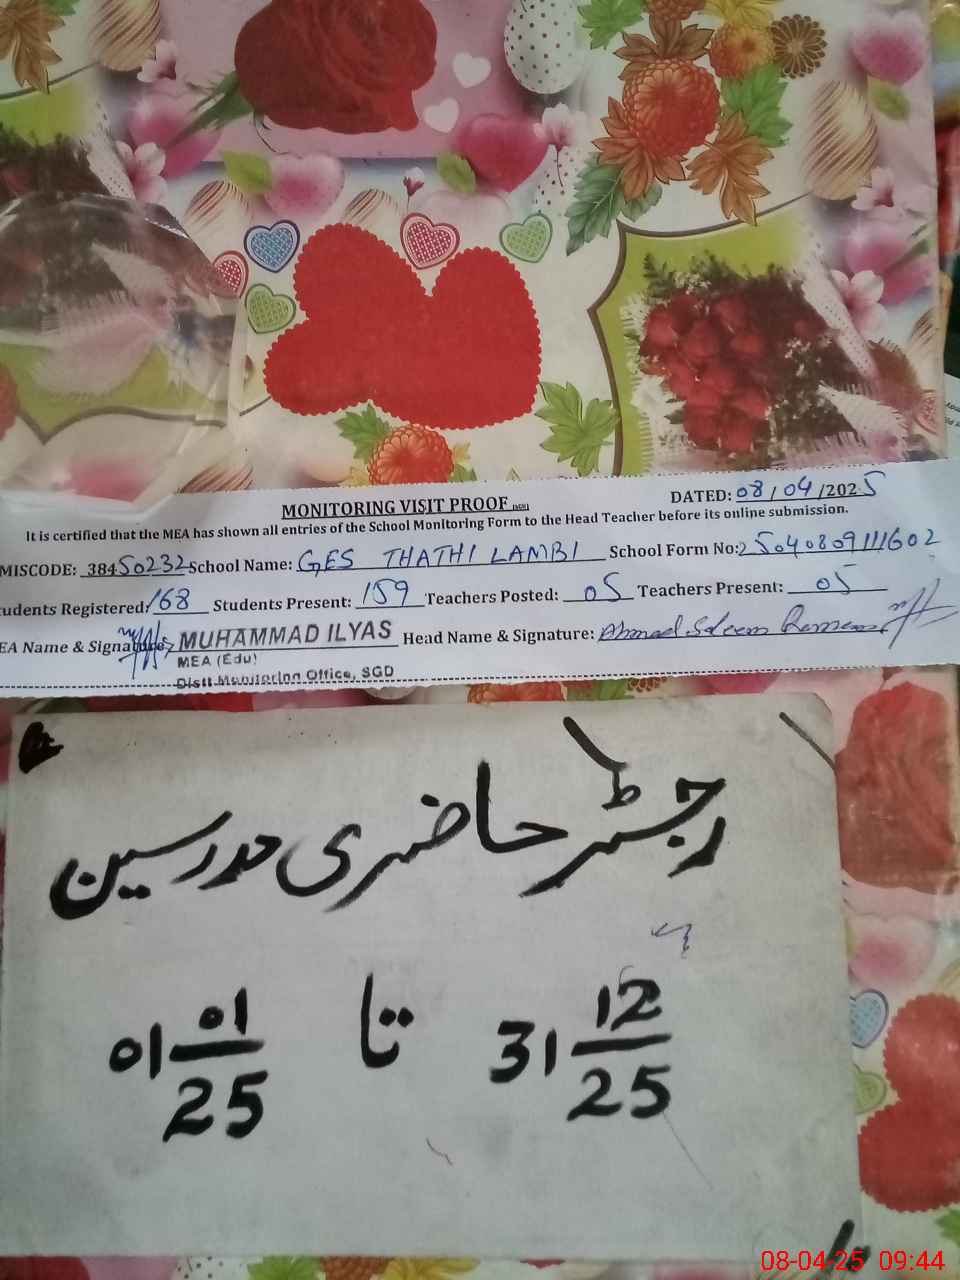 MONITORING VISIT PROOF
DATED: 08/04/2025
It is certified that the MEA has shown all entries of the School Monitoring Form to the Head Teacher before its online submission.
MISCODE: 38450232 School Name: GES THATHI LAMBI School Form No: 250408091111602
tudents Registered: 168 Students Present: 159 Teachers Posted: 05 Teachers Present: 05
EA Name & Signature: MUHAMMAD ILYAS Head Name & Signature: Ahmad Saleem
MEA (Edu)
Distt Monitoring Office, SGD
رجسٹر حاضری مدرسین
01 01/25 تا 31 12/25
08-04-25 09:44